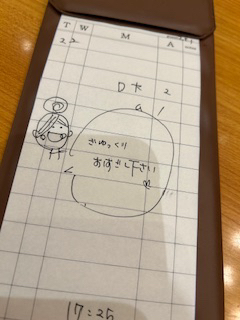 T W M A
22
D た 2
a 1
ごゆっくり
おすごし下さい
17:25